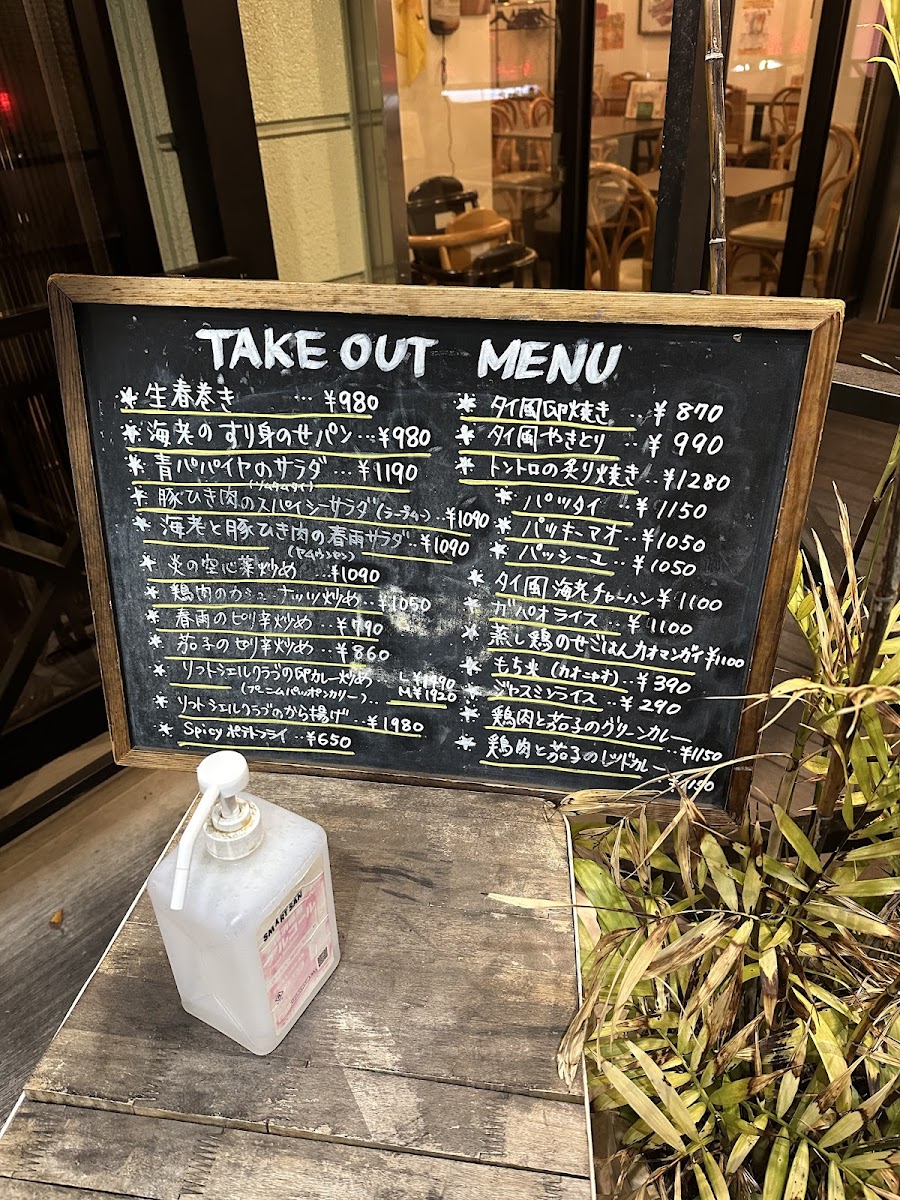 TAKE OUT MENU
* 生春巻き … ¥980
* 海老のすり身のせパン … ¥980
* 青パパイヤのサラダ … ¥1190
(ソムタムタイ)
* 豚ひき肉のスパイシーサラダ(ラープムー) … ¥1090
* 海老と豚ひき肉の春雨サラダ … ¥1090
(ヤムウンセン)
* 炎の空心菜炒め … ¥1090
* 鶏肉のカシューナッツ炒め … ¥1050
* 春雨のピリ辛炒め … ¥990
* 茄子のピリ辛炒め … ¥860
* ソフトシェルクラブの卵カレー炒め L ¥1990
(プーニムパッポンカリー) M ¥1920
* ソフトシェルクラブのから揚げ … ¥1980
* Spicy ポテトフライ … ¥650
* タイ風卵焼き … ¥870
* タイ風やきとり … ¥990
* トントロの炙り焼き … ¥1280
* パッタイ … ¥1150
* パッキーマオ … ¥1050
* パッシーユ … ¥1050
* タイ風海老チャーハン ¥1100
* ガパオライス … ¥1100
* 蒸し鶏のせごはんカオマンガイ ¥1100
* もち米(カオニャオ) … ¥390
* ジャスミンライス … ¥290
* 鶏肉と茄子のグリーンカレー … ¥1150
* 鶏肉と茄子のレッドカレー … ¥1150
SMARTSAN